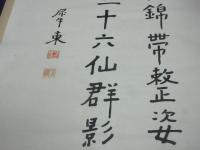 錦帶敇正姿
二十六仙群影
犀東